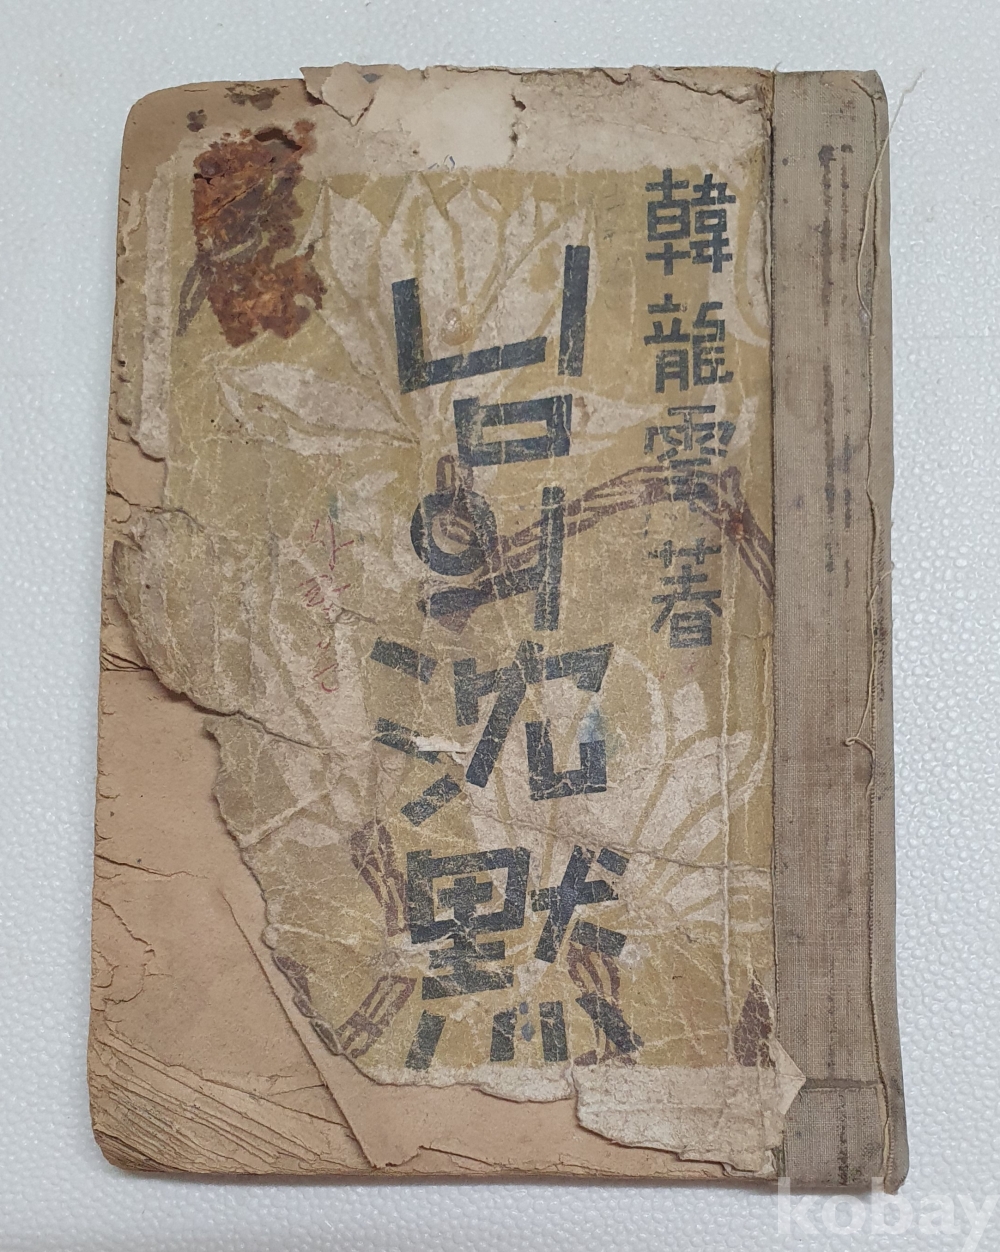 韓龍雲 著
님의 沈默
kobay